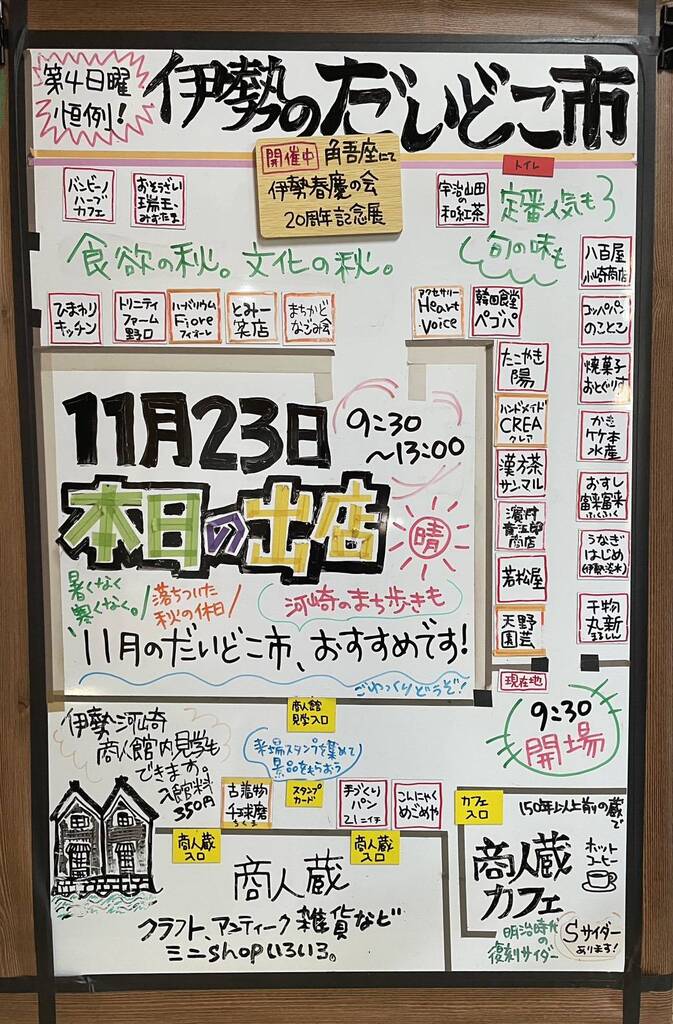 第4日曜
恒例!
伊勢のだいどこ市
開催中 角吾座にて
伊勢春慶の会
20周年記念展
トイレ
バンビーノ
ハーブ
カフェ
おそうざい
瑞玉
みずたま
宇治山田
の
和紅茶
定番人気も
旬の味も
食欲の秋。文化の秋。
八百屋
小崎商店
ひまわり
キッチン
トリニティ
ファーム
野口
ハーバリウム
Fiore
フィオーレ
とみー
笑店
まちかど
なごみ会
アクセサリー
Heart
Voice
韓国食堂
ペゴパ
コッペパン
のことこ
たこやき
陽
焼菓子
おとぐりす
ハンドメイド
CREA
クレア
かき
竹本
水産
漢方茶
サンマル
おすし
富来富来
ふくふく
濱村
青五郎
商店
うなぎ
はじめ
(伊勢淡水)
若松屋
天野
園芸
干物
丸新
まるしん
11月23日
9:30
~13:00
本日の出店
晴
暑くなく
寒くなく。
落ちついた
秋の休日
河崎のまち歩きも
11月のだいどこ市、おすすめです!
ごゆっくりどうぞ!
現在地
9:30
開場
商人館
見学入口
伊勢河崎
商人館内見学も
できます。
入館料
350円
来場スタンプを集めて
景品をもらおう
古着物
千球磨
ちくま
スタンプ
カード
手づくり
パン
211ニイチ
こんにゃく
めごめや
カフェ
入口
商人蔵
入口
商人蔵
入口
商人蔵
クラフト、アンティーク雑貨など
ミニshopいろいろ。
150年以上前の蔵で
商人蔵
カフェ
ホット
コーヒー
明治時代
の
復刻サイダー
Sサイダー
あります!